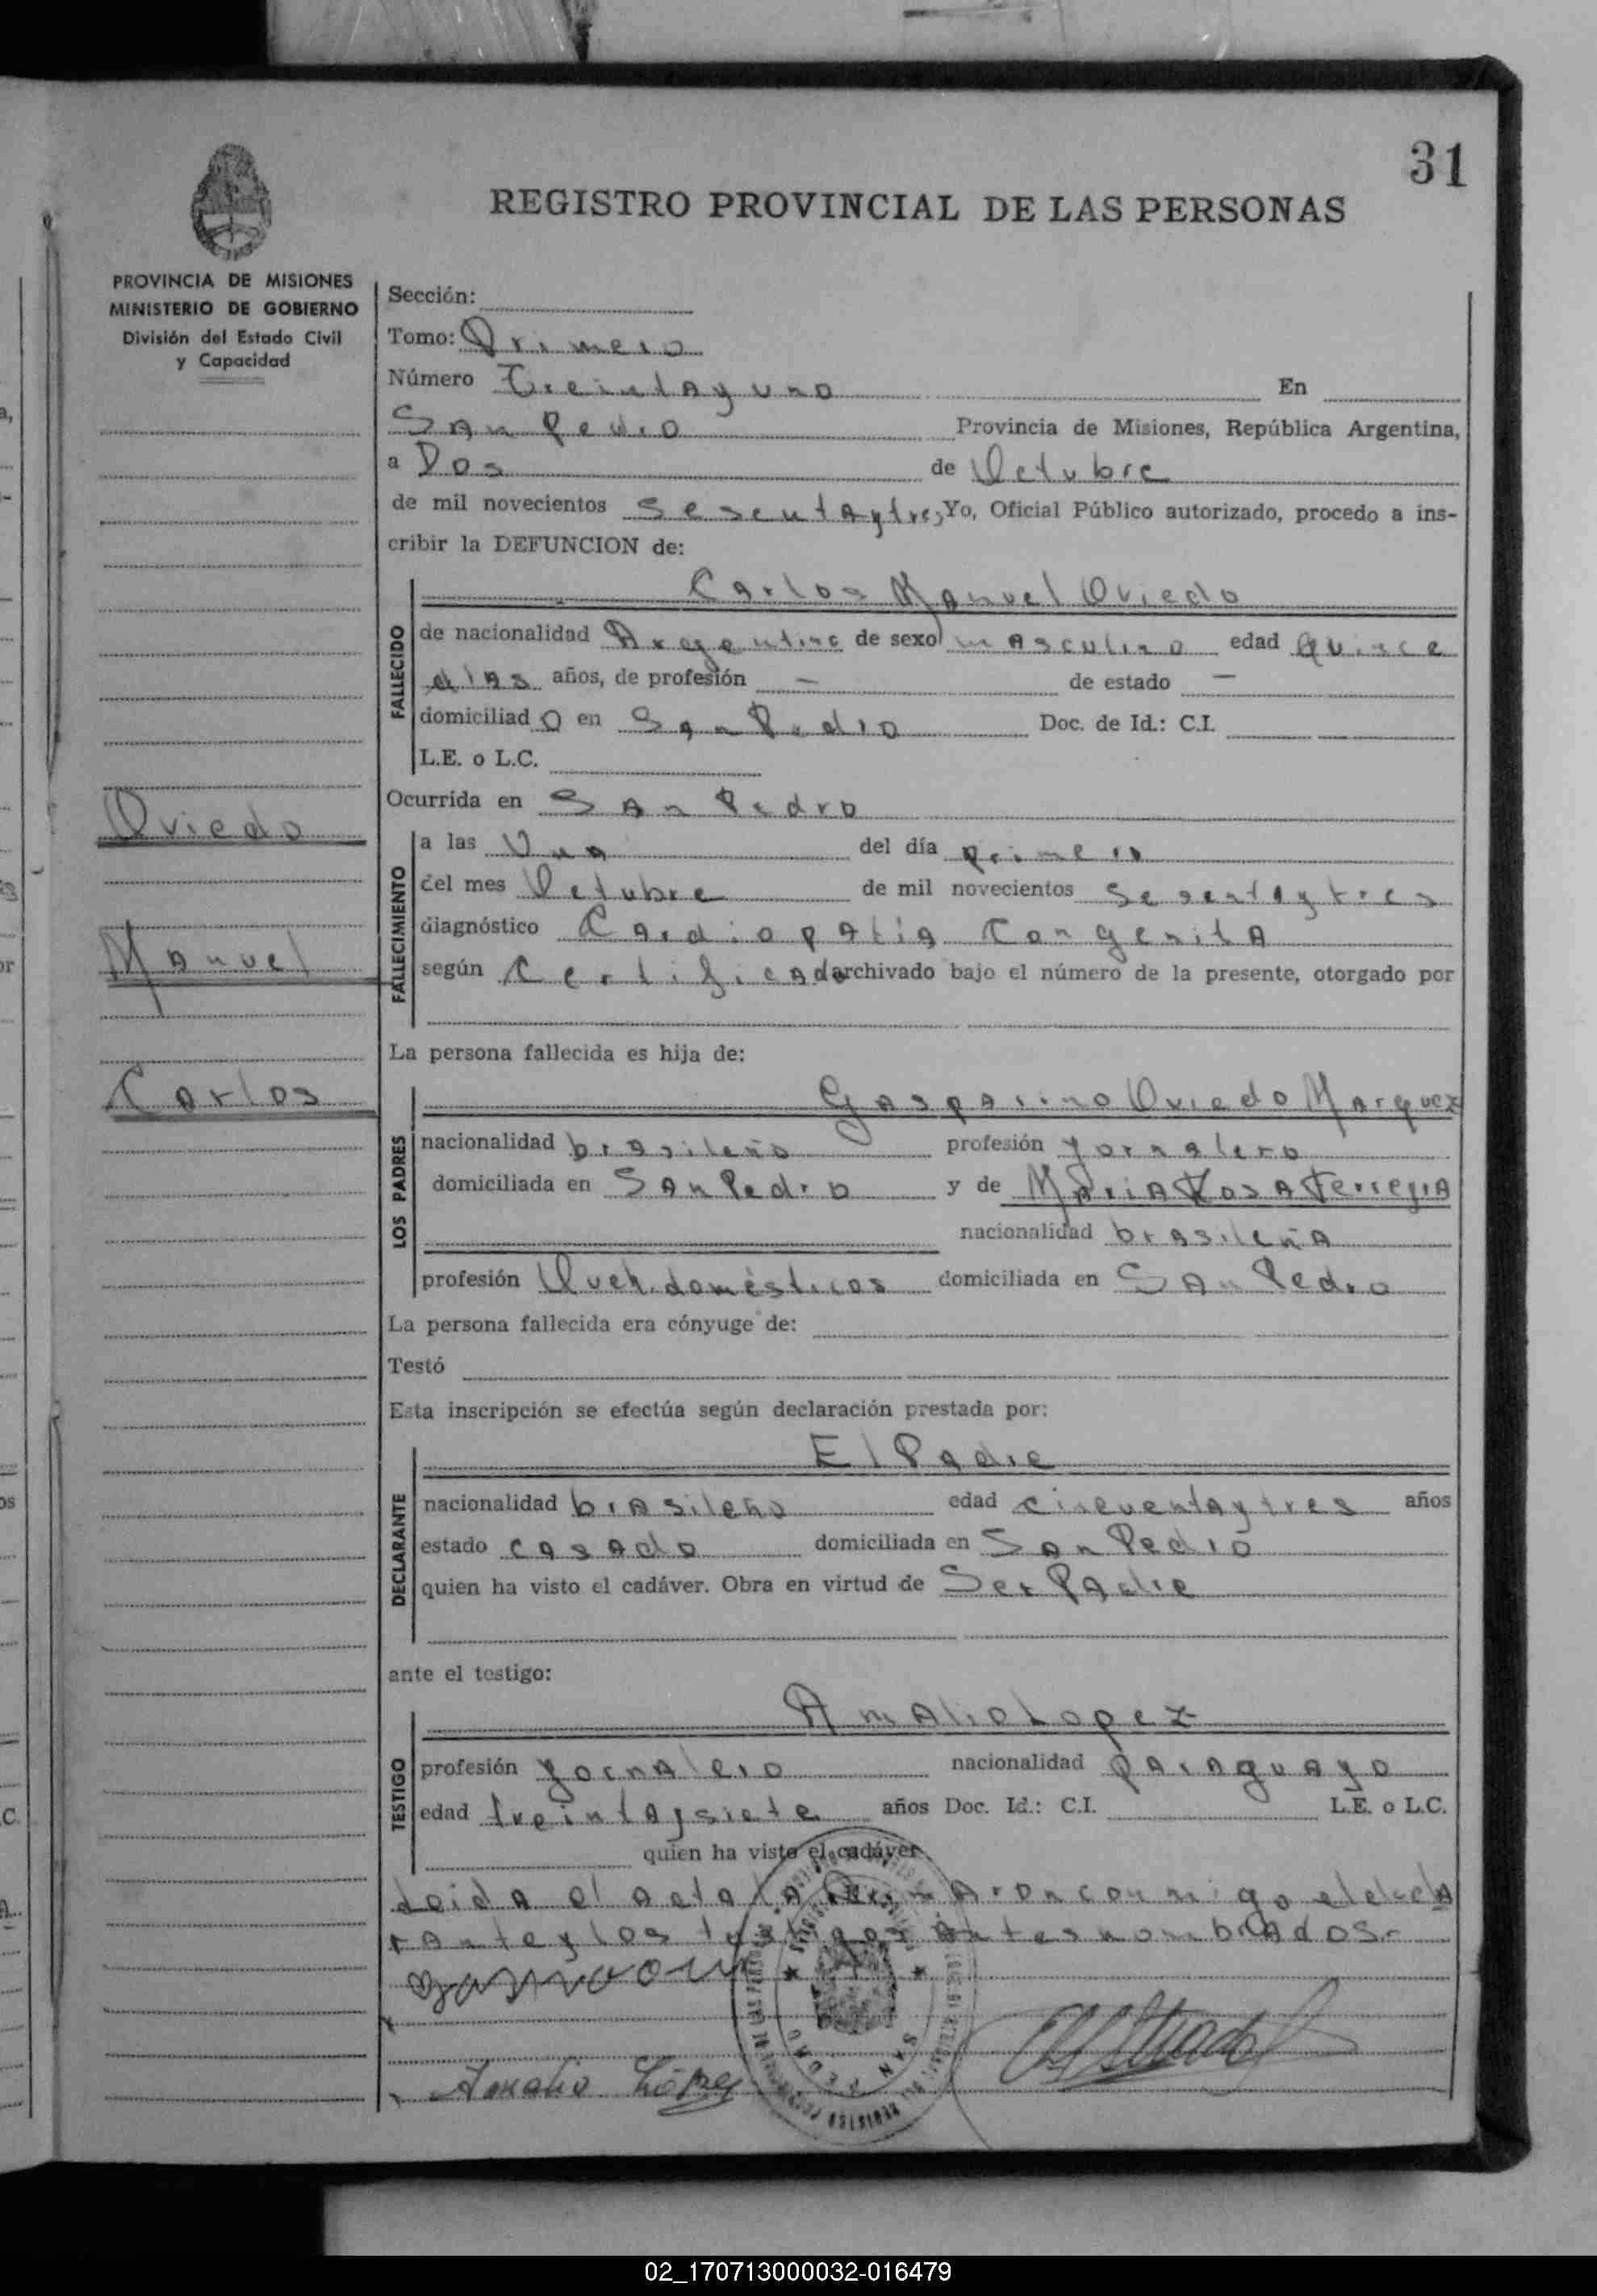 31
REGISTRO PROVINCIAL DE LAS PERSONAS
PROVINCIA DE MISIONES
MINISTERIO DE GOBIERNO
División del Estado Civil
y Capacidad
Oviedo
Manuel
Carlos
Sección:
Tomo: Primero
Número Treintayuno En
San Pedro Provincia de Misiones, República Argentina,
a Dos de Octubre
de mil novecientos sesentaytres Yo, Oficial Público autorizado, procedo a ins-
cribir la DEFUNCION de:
Carlos Manuel Oviedo
FALLECIDO
de nacionalidad Argentino de sexo masculino edad Quince
dias años, de profesión — de estado —
domiciliad o en San Pedro Doc. de Id.: C.I.
L.E. o L.C.
Ocurrida en San Pedro
FALLECIMIENTO
a las Una del día primero
del mes Octubre de mil novecientos sesentaytres
diagnóstico Cardiopatía Congenita
según Certificado archivado bajo el número de la presente, otorgado por
La persona fallecida es hija de:
Gasparino Oviedo Marquez
LOS PADRES
nacionalidad brasileño profesión Jornalero
domiciliada en San Pedro y de Maria Rosa Ferreira
nacionalidad brasileña
profesión Queh. domésticos domiciliada en San Pedro
La persona fallecida era cónyuge de:
Testó
Esta inscripción se efectúa según declaración prestada por:
El Padre
DECLARANTE
nacionalidad brasileño edad cincuentaytres años
estado casado domiciliada en San Pedro
quien ha visto el cadáver. Obra en virtud de Ser Padre
ante el testigo:
Amalio Lopez
TESTIGO
profesión Jornalero nacionalidad paraguayo
edad treintaysiete años Doc. Id.: C.I. L.E. o L.C.
quien ha visto el cadáver.
Leida el acta la firmaron conmigo el decla
rante y los testigos antes nombrados.-
Amalio López
SAN PEDRO
02_170713000032-016479